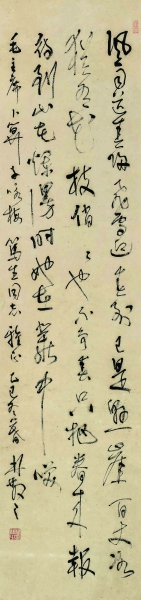 風雨送春歸飛雪迎春到已是懸崖百丈冰
猶有花枝俏〻也不争春只把春來報
待到山花爛漫时她在叢中笑
毛主席卜算子咏梅 篤生同志雅正 乙巳 林散之